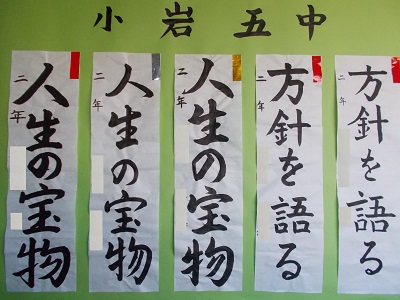 小岩五中
方針を語る
二年
方針を語る
二年
人生の宝物
二年
人生の宝物
二年
人生の宝物
二年